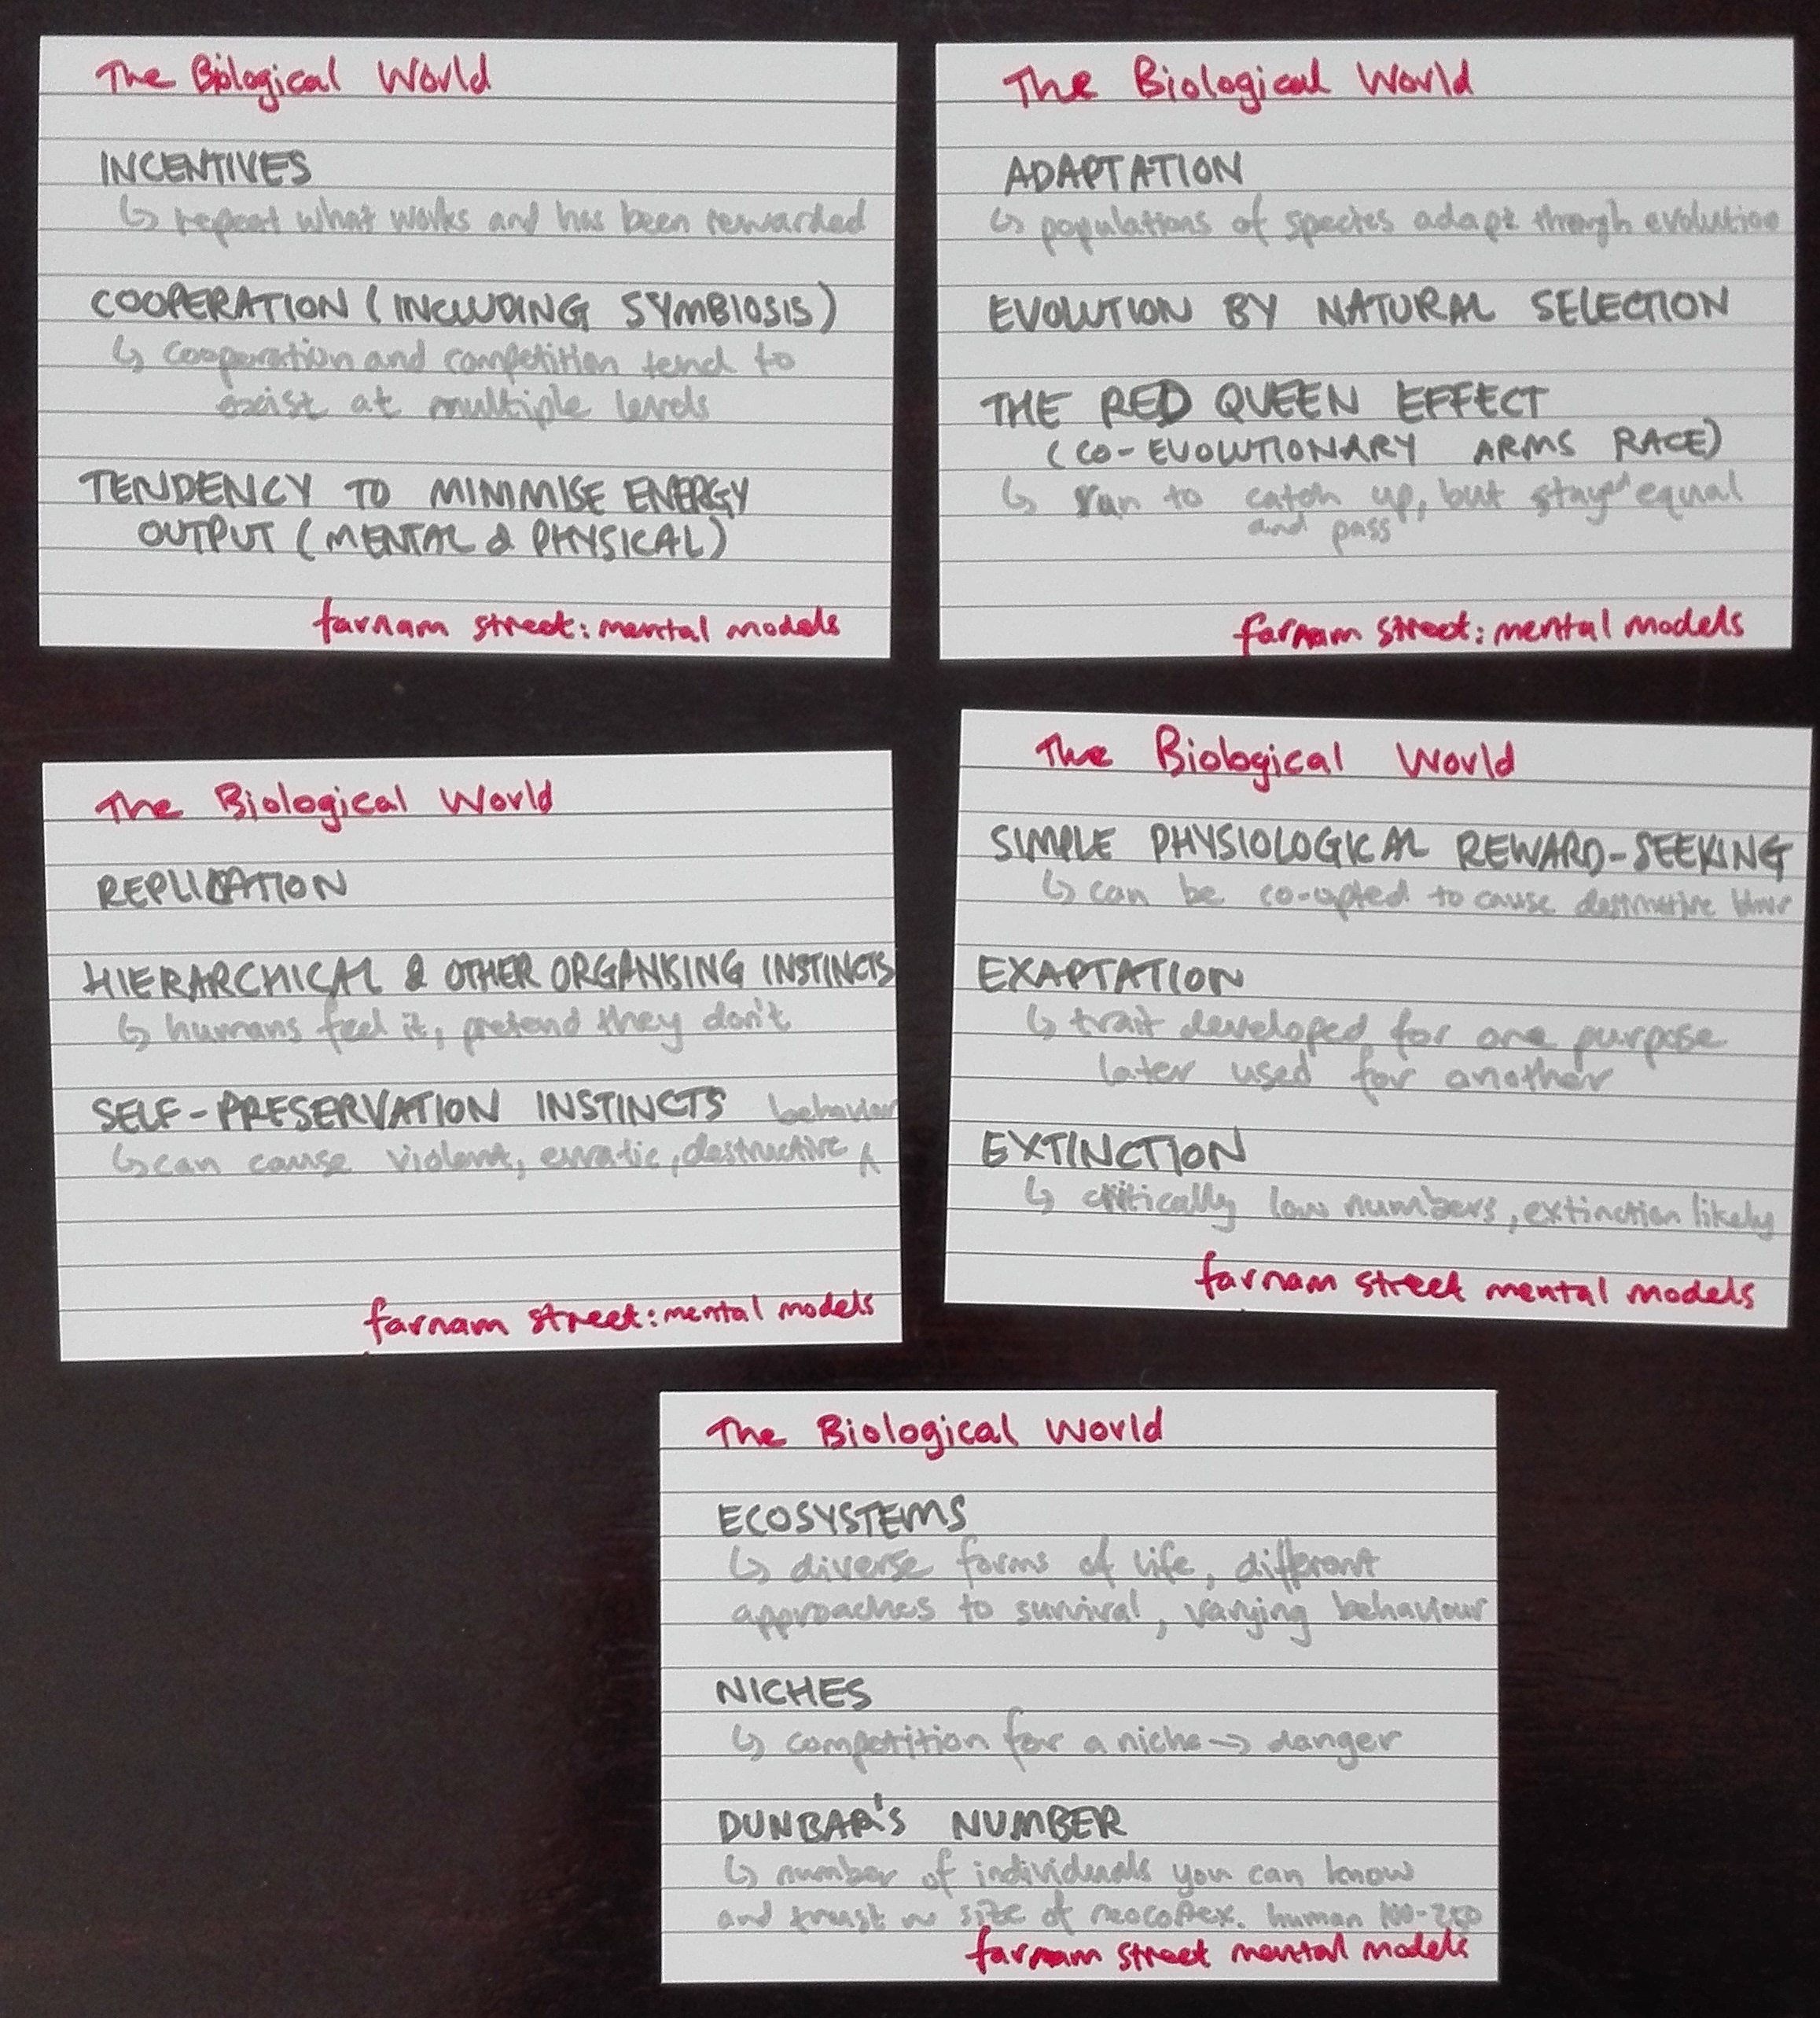 The Biological World
INCENTIVES
↳ repeat what works and has been rewarded
COOPERATION (INCLUDING SYMBIOSIS)
↳ cooperation and competition tend to
exist at multiple levels
TENDENCY TO MINIMISE ENERGY
OUTPUT (MENTAL & PHYSICAL)
farnam street: mental models
The Biological World
ADAPTATION
↳ populations of species adapt through evolution
EVOLUTION BY NATURAL SELECTION
THE RED QUEEN EFFECT
(CO-EVOLUTIONARY ARMS RACE)
↳ run to catch up, but stay equal
and pass
farnam street: mental models
The Biological World
REPLICATION
HIERARCHICAL & OTHER ORGANISING INSTINCTS
↳ humans feel it, pretend they don't
SELF-PRESERVATION INSTINCTS behaviour
↳ can cause violent, erratic, destructive ^
farnam street: mental models
The Biological World
SIMPLE PHYSIOLOGICAL REWARD-SEEKING
↳ can be co-opted to cause destructive
EXAPTATION
↳ trait developed for one purpose
later used for another
EXTINCTION
↳ critically low numbers, extinction likely
farnam street mental models
The Biological World
ECOSYSTEMS
↳ diverse forms of life, different
approaches to survival, varying behaviour
NICHES
↳ competition for a niche → danger
DUNBAR'S NUMBER
↳ number of individuals you can know
and trust ~ size of neocortex. human 100-250
farnam street mental models